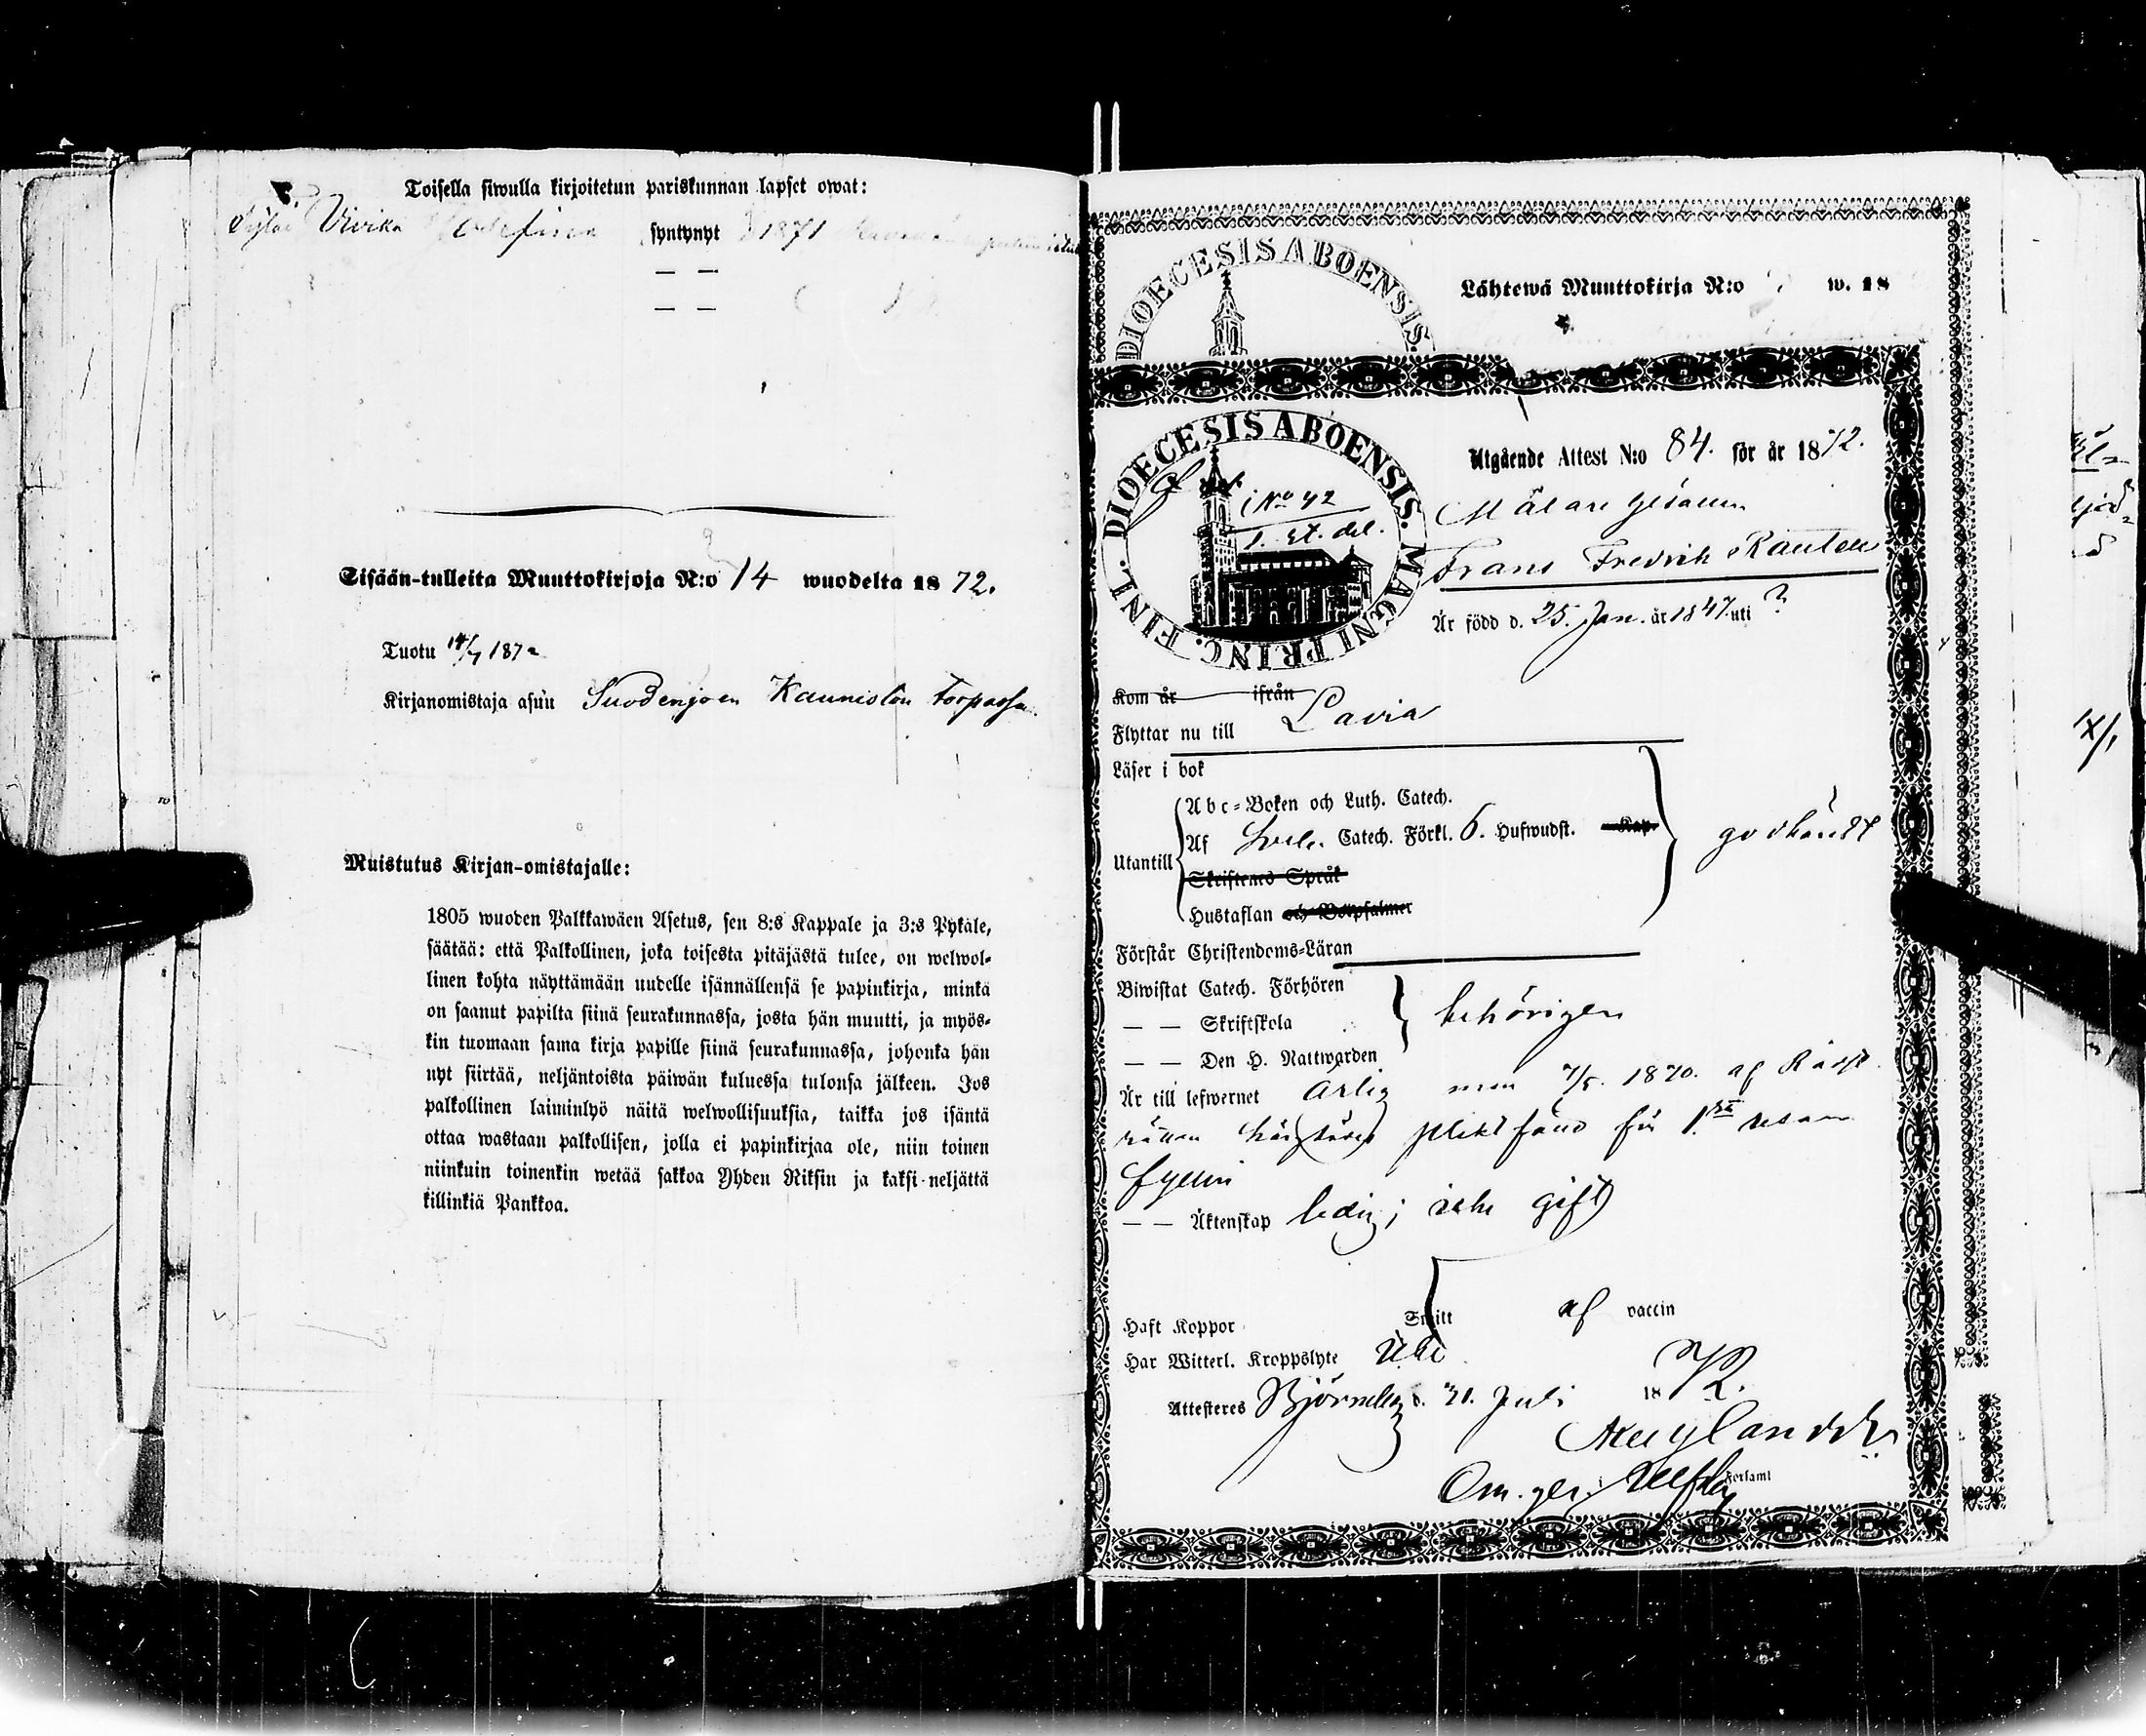 Toisella siwulla kirjoitetun pariskunnan lapset owat:
Vivika syntynyt 1871
— —
— —
Sisään-tulleita Muuttokirjoja N:o 14 wuodelta 1872.
Tuotu 14/7 1872
Kirjanomistaja asuu Suodenjoen Kauniston torpassa.
Muistutus Kirjan-omistajalle:
1805 wuoden Palkkawäen Asetus, sen 8:s Kappale ja 3:s Pykäle,
säätää: että Palkollinen, joka toisesta pitäjästä tulee, on welwol-
linen kohta näyttämään uudelle isännällensä se papinkirja, minkä
on saanut papilta siinä seurakunnassa, josta hän muutti, ja myös-
kin tuomaan sama kirja papille siinä seurakunnassa, johonka hän
nyt siirtää, neljäntoista päiwän kuluessa tulonsa jälkeen. Jos
palkollinen laiminlyö näitä welwollisuuksia, taikka jos isäntä
ottaa wastaan palkollisen, jolla ei papinkirjaa ole, niin toinen
niinkuin toinenkin wetää sakkoa Yhden Riksin ja kaksi neljättä
killinkiä Pankkoa.
DIOECESIS ABOENSIS.
Lähtewä Muuttokirja N:o w. 18
DIOECESIS ABOENSIS. MAGNI PRINC. FINL.
i No 42
1. st. del.
Utgående Attest N:o 84. för år 1872.
Målare gesällen
Frans Fredrik Rautell
Är född d. 25. Jan. år 1847 uti ?
Kom år ifrån
Flyttar nu till Lavia
Läser i bok
Utantill
Abc-Boken och Luth. Catech.
Af Sveb. Catech. Förkl. 6. Hufwudst. Kap.
Skriftenes Språk
Hustaflan och Botpsalmer
godkändt
Förstår Christendoms-Läran
Biwistat Catech. Förhören
— — Skriftskola
— — Den H. Nattwarden
behörigen
Är till lefwernet ärlig men 7/5. 1870. af Rådst.
rätten pliktfäld för 1sta resan
fylleri
— — Äktenskap ledig; icke gift
Haft Koppor Smitt af vaccin
Har Witterl. Kroppslyte
Attesteres Björneborg d. 31. Juli 1872.
Forsamt